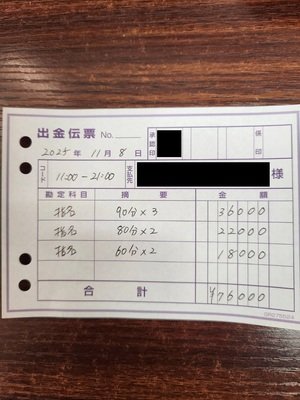 出金伝票 No.
承認印
係印
2025年 11月 8日
コード 11:00-21:00 支払先 様
勘定科目 摘要 金額
指名 90分×3 36000
指名 80分×2 22000
指名 60分×2 18000
合計 ¥76000